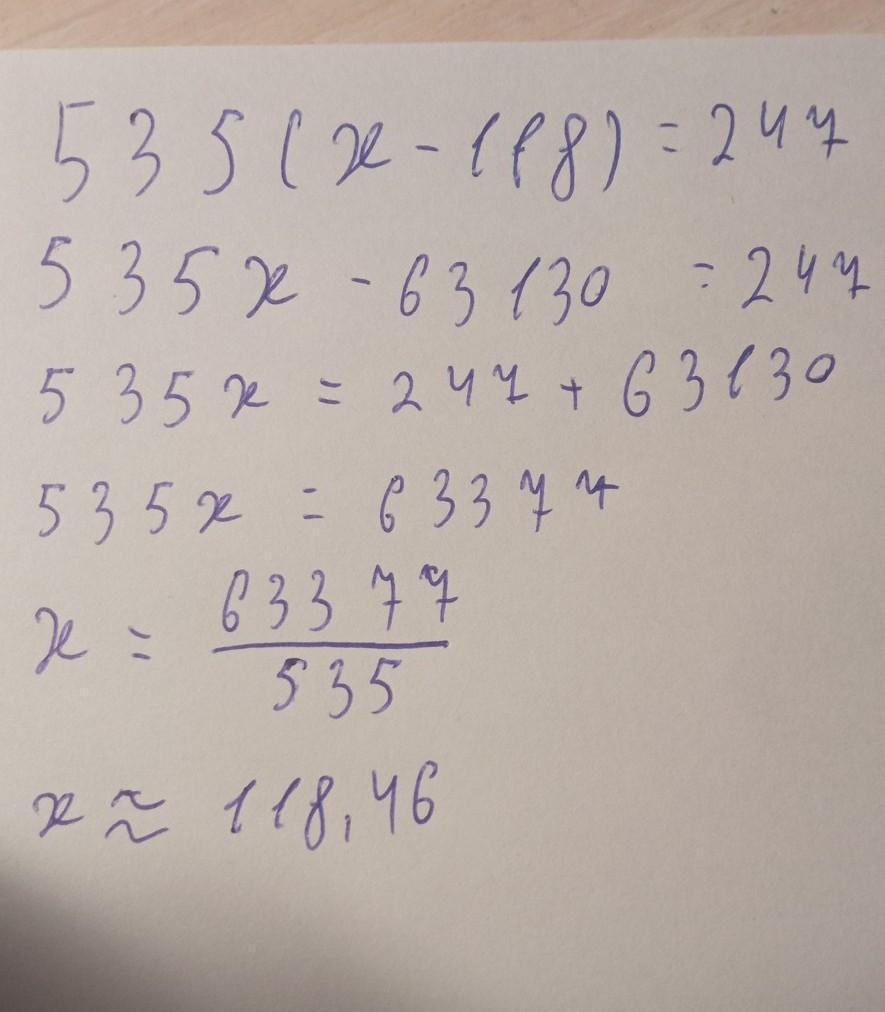 535(x-118)=247
535x -63130 =247
535x = 247 + 63130
535x = 63377
x = 63377/535
x ≈ 118,46